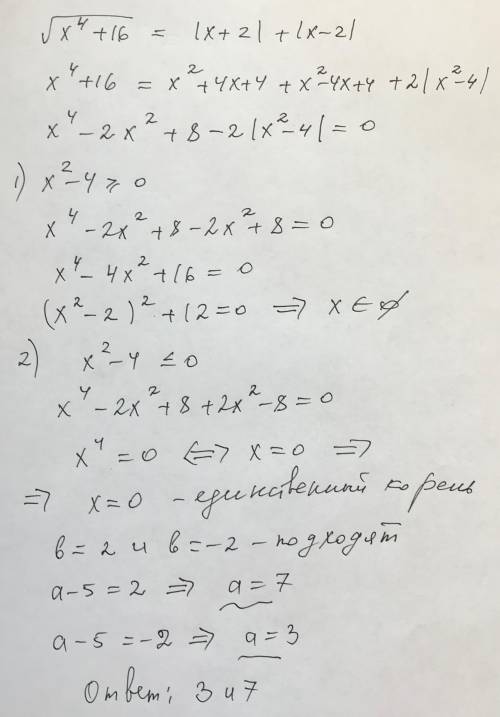 √(x⁴+16) = |x+2| + |x-2|
x⁴+16 = x²+4x+4 + x²-4x+4 + 2|x²-4|
x⁴-2x²+8-2|x²-4| = 0
1) x²-4 ⩾ 0
x⁴-2x²+8-2x²+8=0
x⁴-4x²+16=0
(x²-2)²+12=0 ⇒ x∈∅
2) x²-4 ≤ 0
x⁴-2x²+8+2x²-8=0
x⁴=0 ⇔ x=0 ⇒
⇒ x=0 - единственный корень
в=2 и в=-2 - подходят
a-5=2 ⇒ a=7
a-5=-2 ⇒ a=3
Ответ: 3 и 7